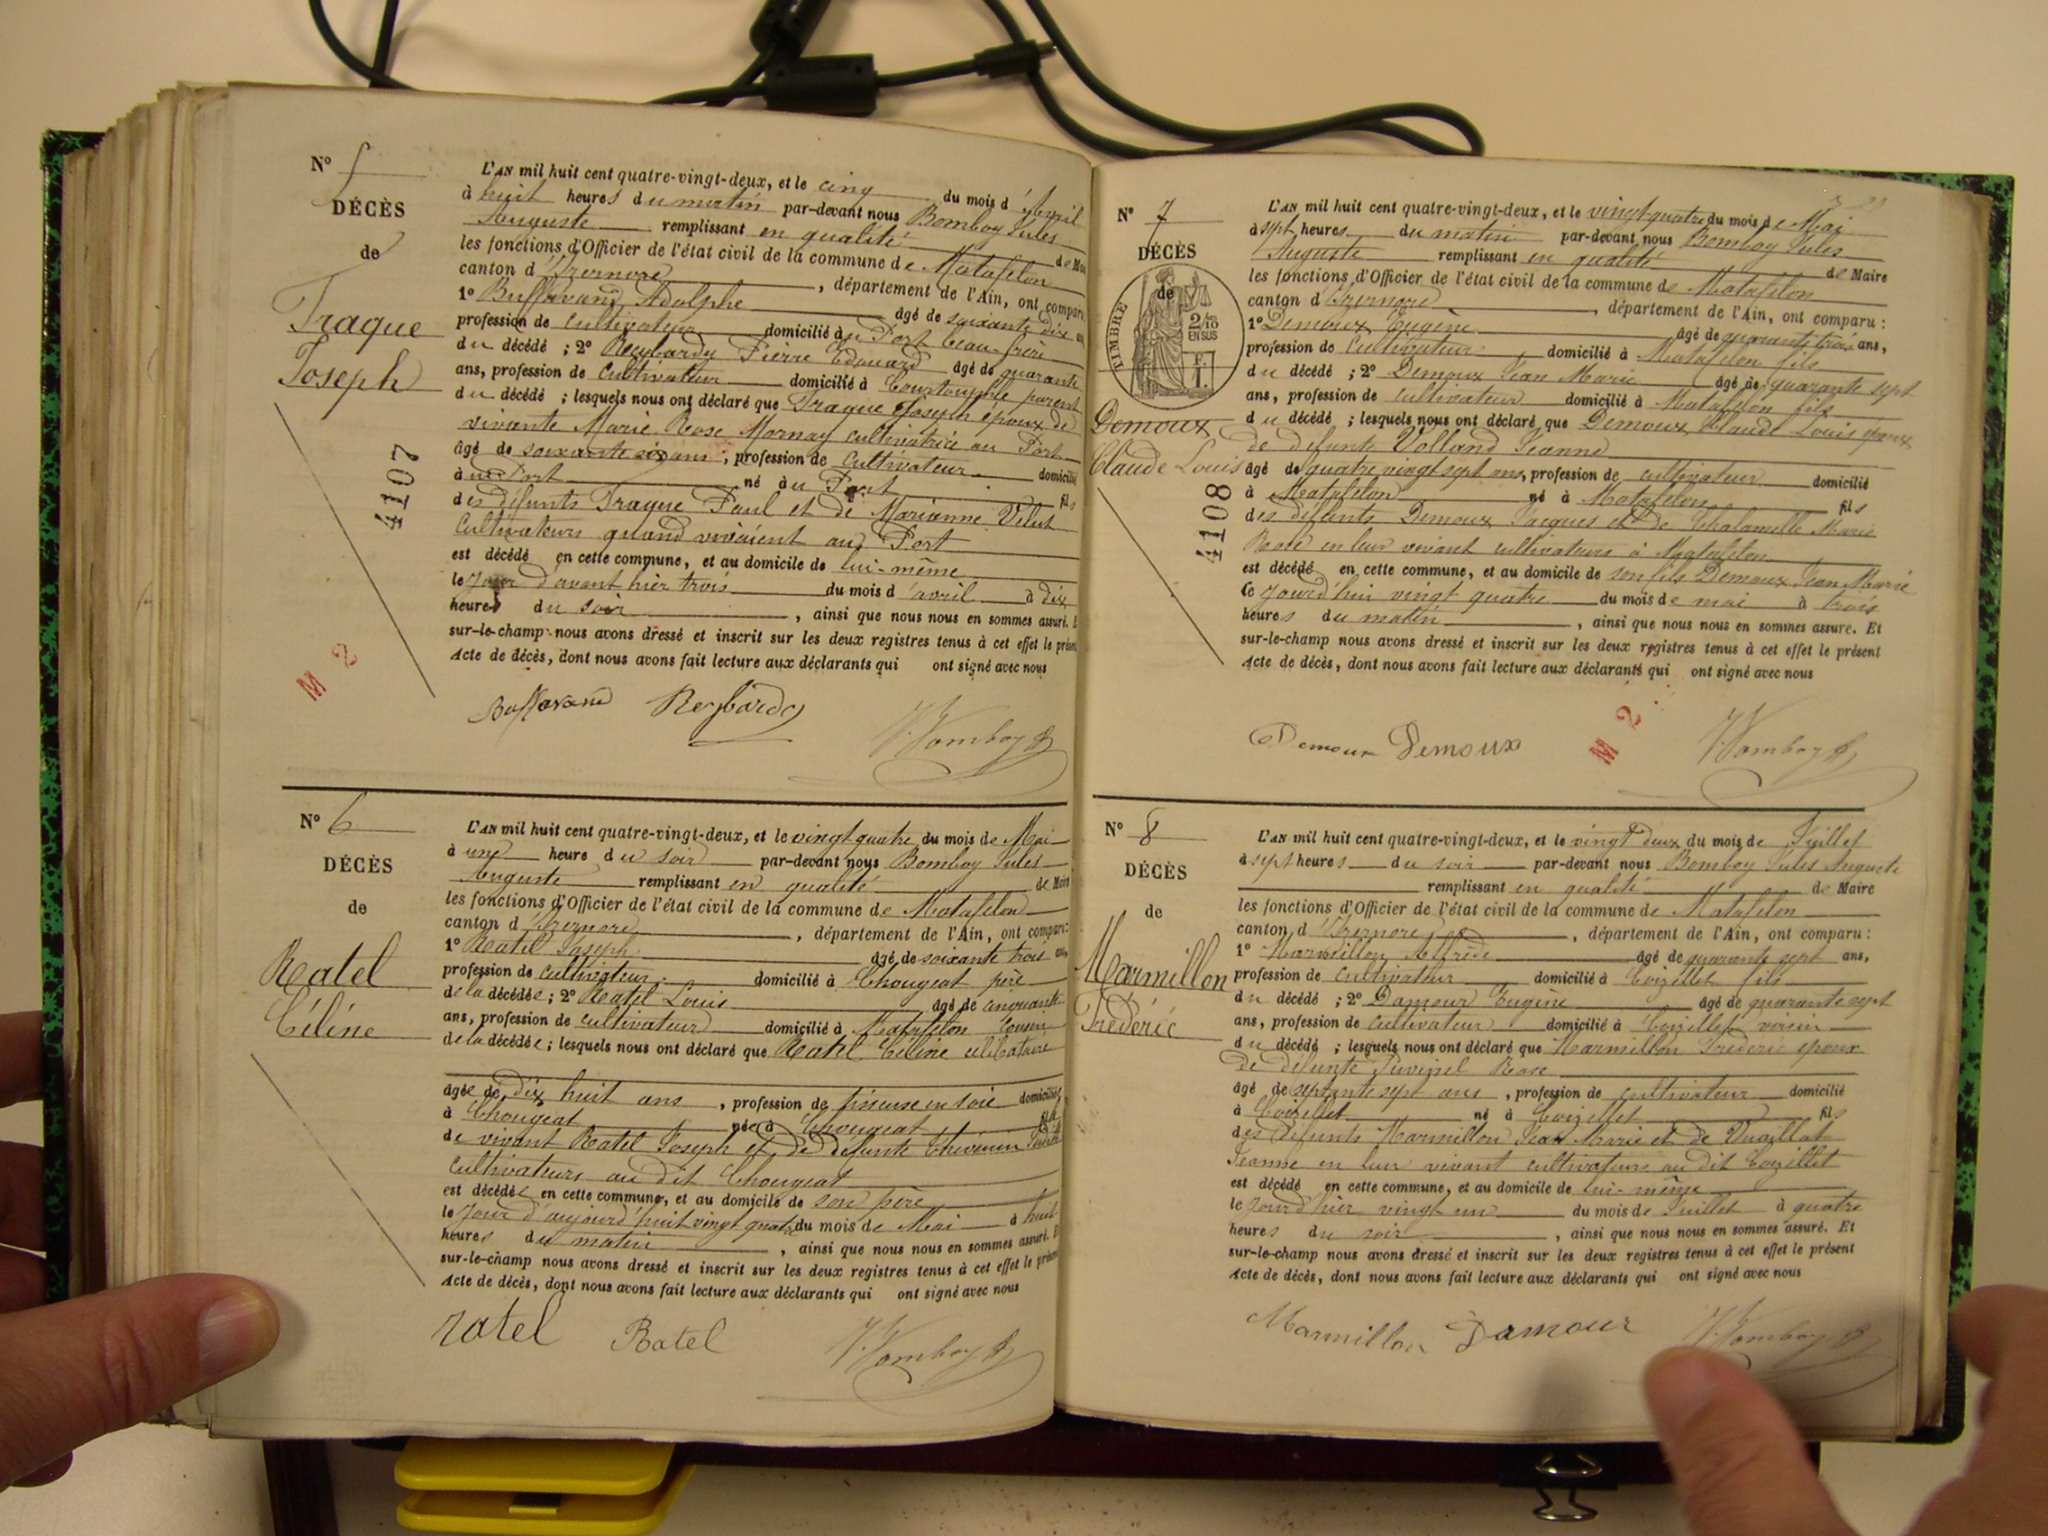 N° 5
DÉCÈS
de
Traque
Joseph
4107
M 2
L'AN mil huit cent quatre-vingt-deux, et le cinq du mois d'Avril
à huit heures du matin par-devant nous Bomboy Jules
Auguste remplissant en qualité de Mai
les fonctions d'Officier de l'état civil de la commune de Matafelon
canton d'Izernore, département de l'Ain, ont compar
1° Buffavand Adolphe âgé de soixante dix
profession de cultivateur domicilié au Port beau-frère
du décédé ; 2° Reybardy Pierre Edouard âgé de quarante
ans, profession de cultivateur domicilié à Courtouphle parent
du décédé ; lesquels nous ont déclaré que Traque Joseph époux de
vivante Marie Rose Mornay cultivatrice au Port
âgé de soixante six ans, profession de cultivateur domicilié
au Port né au Port fils
des défunts Traque Paul et de Marianne Velut
cultivateurs quand vivaient au Port
est décédé en cette commune, et au domicile de lui-même
le jour d'avant hier trois du mois d'avril à dix
heures du soir, ainsi que nous nous en sommes assuré. E
sur-le-champ nous avons dressé et inscrit sur les deux registres tenus à cet effet le présen
Acte de décès, dont nous avons fait lecture aux déclarants qui ont signé avec nous
Buffavand Reybardy J. Bomboy
N° 6
DÉCÈS
de
Ratel
Céline
L'AN mil huit cent quatre-vingt-deux, et le vingt quatre du mois de Mai
à une heure du soir par-devant nous Bomboy Jules
Auguste remplissant en qualité de Maire
les fonctions d'Officier de l'état civil de la commune de Matafelon
canton d'Izernore, département de l'Ain, ont comparu
1° Ratel Joseph âgé de soixante trois ans
profession de cultivateur domicilié à Chougeat père
de la décédée ; 2° Ratel Louis âgé de cinquante
ans, profession de cultivateur domicilié à Matafelon cousin
de la décédée ; lesquels nous ont déclaré que Ratel Céline célibataire
âgée de dix huit ans, profession de tisseuse en soie domiciliée
à Chougeat née à Chougeat fille
de vivant Ratel Joseph et de défunte
cultivateurs au dit Chougeat
est décédée en cette commune, et au domicile de son père
le jour d'aujourd'hui vingt quatre du mois de Mai à huit
heures du matin, ainsi que nous nous en sommes assuré. E
sur-le-champ nous avons dressé et inscrit sur les deux registres tenus à cet effet le présen
Acte de décès, dont nous avons fait lecture aux déclarants qui ont signé avec nous
ratel Ratel J. Bomboy
N° 7
DÉCÈS
de
TIMBRE
2/10
EN SUS
Demoux
Claude Louis
4108
L'AN mil huit cent quatre-vingt-deux, et le vingt-quatre du mois de Mai
à sept heures du matin par-devant nous Bomboy Jules
Auguste remplissant en qualité de Maire
les fonctions d'Officier de l'état civil de la commune de Matafelon
canton d'Izernore, département de l'Ain, ont comparu :
1° Demoux Eugène âgé de quarante trois ans,
profession de cultivateur domicilié à Matafelon fils
du décédé ; 2° Demoux Jean Marie âgé de quarante sept
ans, profession de cultivateur domicilié à Matafelon fils
du décédé ; lesquels nous ont déclaré que Demoux Claude Louis époux
de défunte Volland Jeanne
âgé de quatre vingt sept ans, profession de cultivateur domicilié
à Matafelon né à Matafelon fils
des défunts Demoux Jacques et de Chalamelle Marie
Rose en leur vivant cultivateurs à Matafelon
est décédé en cette commune, et au domicile de son fils Demoux Jean Marie
le jourd'hui vingt quatre du mois de mai à trois
heures du matin, ainsi que nous nous en sommes assuré. Et
sur-le-champ nous avons dressé et inscrit sur les deux registres tenus à cet effet le présent
Acte de décès, dont nous avons fait lecture aux déclarants qui ont signé avec nous
Demoux Demoux M 2 J. Bomboy
N° 8
DÉCÈS
de
Marmillon
Frédéric
L'AN mil huit cent quatre-vingt-deux, et le vingt deux du mois de Juillet
à sept heures du soir par-devant nous Bomboy Jules Auguste
remplissant en qualité de Maire
les fonctions d'Officier de l'état civil de la commune de Matafelon
canton d'Izernore, département de l'Ain, ont comparu :
1° Marmillon Alfred âgé de quarante sept ans,
profession de cultivateur domicilié à Coizellet fils
du décédé ; 2° Damour Eugène âgé de quarante sept
ans, profession de cultivateur domicilié à Coizellet voisin
du décédé ; lesquels nous ont déclaré que Marmillon Frédéric époux
de défunte Rose
âgé de septante sept ans, profession de cultivateur domicilié
à Coizellet né à Coizellet fils
des défunts Marmillon Jean Marie et de Vuaillat
Jeanne en leur vivant cultivateurs au dit Coizellet
est décédé en cette commune, et au domicile de lui-même
le jourd'hier vingt un du mois de Juillet à quatre
heures du soir, ainsi que nous nous en sommes assuré. Et
sur-le-champ nous avons dressé et inscrit sur les deux registres tenus à cet effet le présent
Acte de décès, dont nous avons fait lecture aux déclarants qui ont signé avec nous
Marmillon Damour J. Bomboy